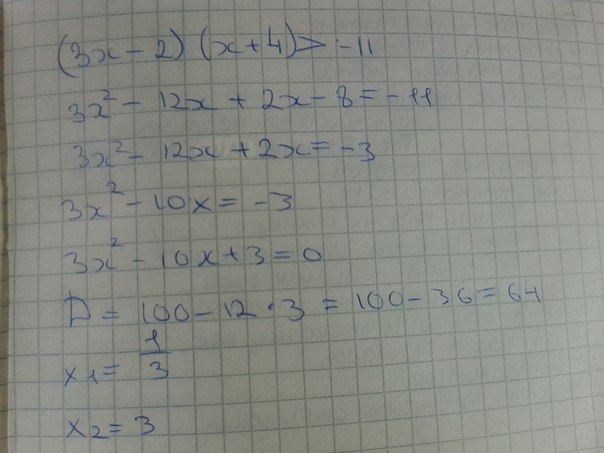 (3x - 2) (x + 4) > -11
3x² - 12x + 2x - 8 = -11
3x² - 12x + 2x = -3
3x² - 10x = -3
3x² - 10x + 3 = 0
D = 100 - 12 · 3 = 100 - 36 = 64
x₁ = 1/3
x₂ = 3